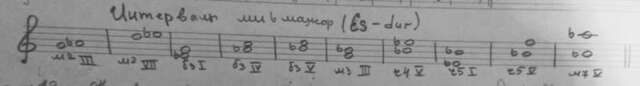 Интервалы ми b мажор (Es-dur)
м2 III м2 VII б3 I б3 IV б3 V м3 III ч4 V ч5 I ч5 V м7 V